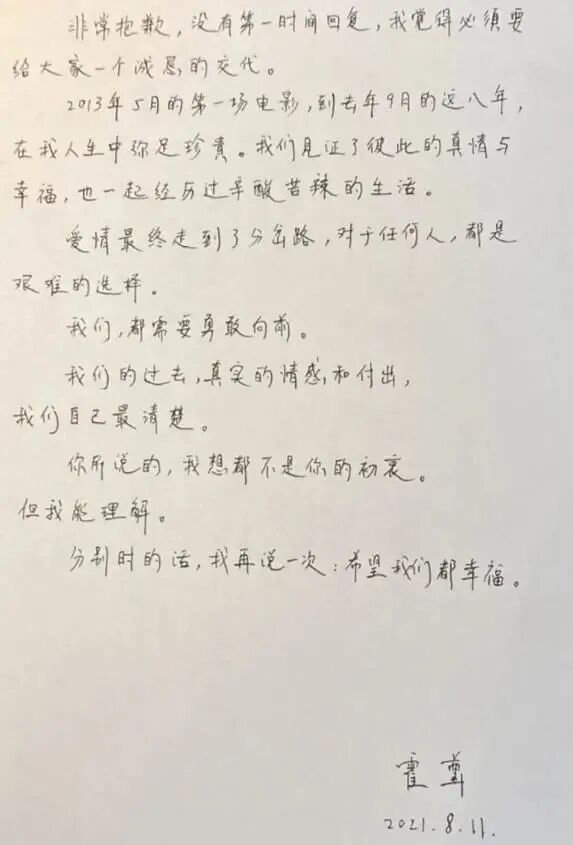 非常抱歉，没有第一时间回复，我觉得必须要
给大家一个诚恳的交代。
2013年5月的第一场电影，到去年9月的这八年，
在我人生中弥足珍贵。我们见证了彼此的真情与
幸福，也一起经历过辛酸苦辣的生活。
爱情最终走到了分岔路，对于任何人，都是
艰难的选择。
我们，都需要勇敢向前。
我们的过去，真实的情感和付出，
我们自己最清楚。
你所说的，我想都不是你的初衷。
但我能理解。
分别时的话，我再说一次：希望我们都幸福。
霍尊
2021.8.11.